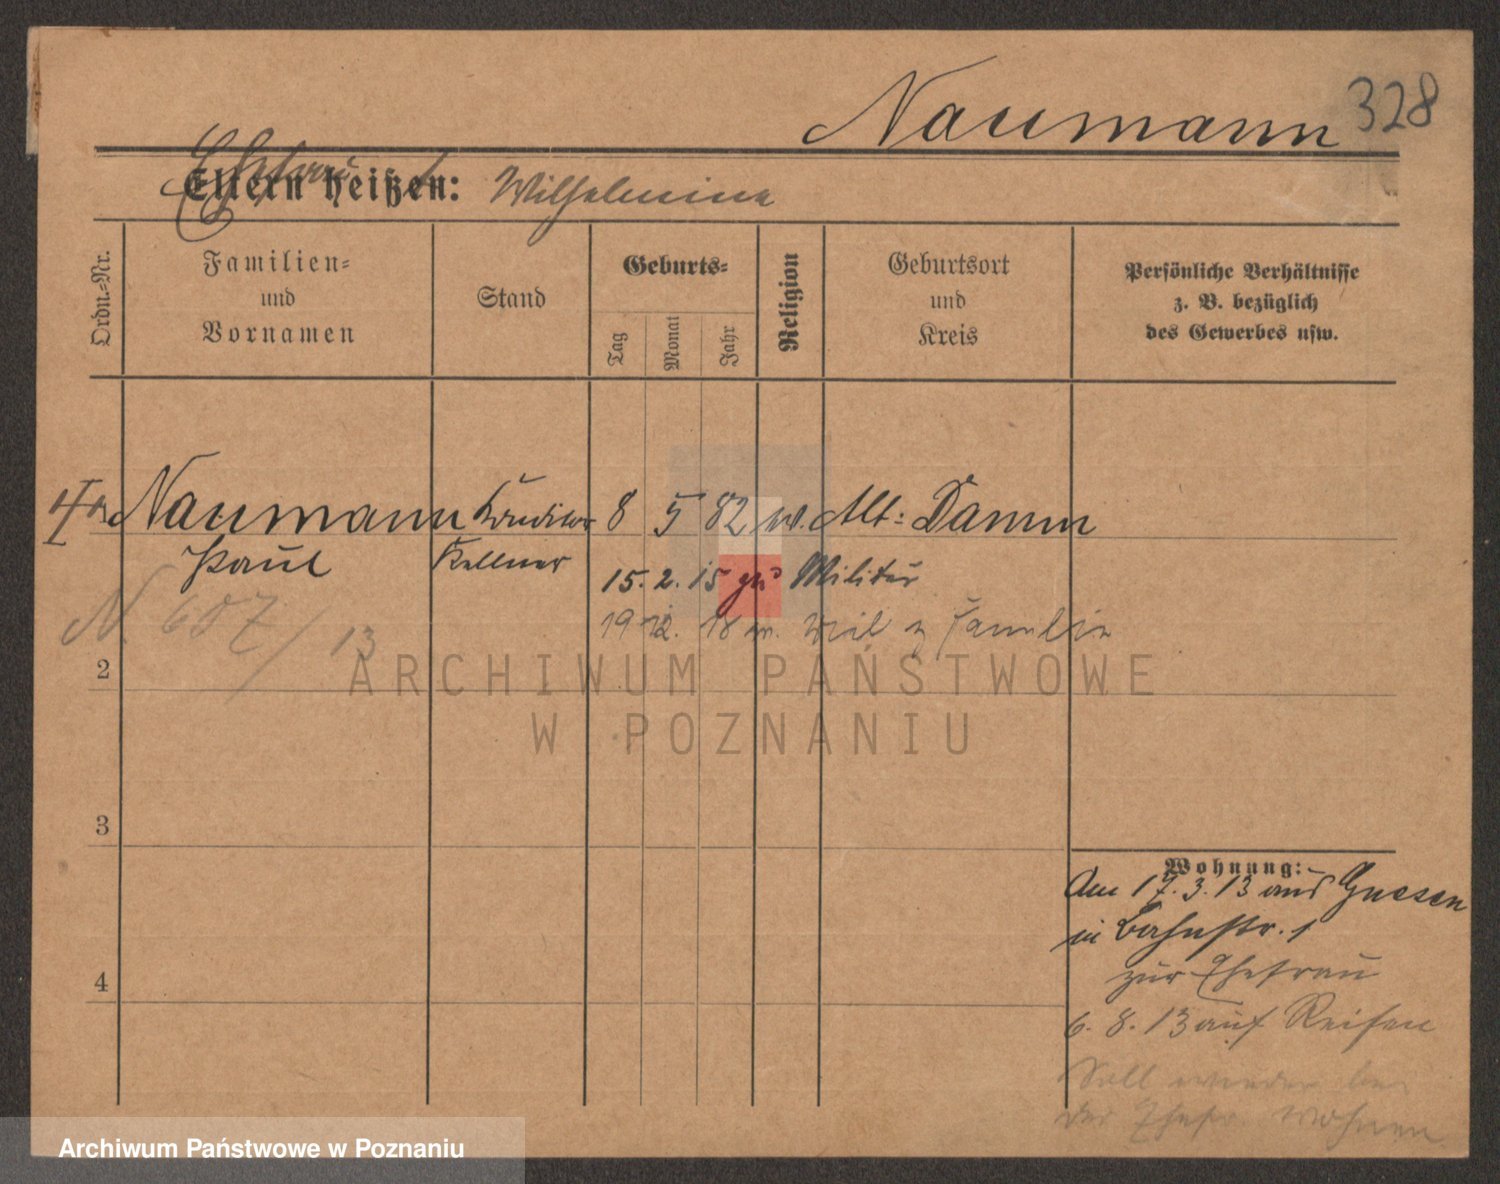 Naumann 328
Ehefrau
Eltern heißen: Wilhelmine
Ordn.-Nr.
Familien-
und
Vornamen
Stand
Geburts-
Tag
Monat
Jahr
Religion
Geburtsort
und
Kreis
Persönliche Verhältnisse
z. B. bezüglich
des Gewerbes usw.
Naumann Konditor 8 5 82 Alt-Damm
Paul Kellner
15. 2. 15 zu Militär
19 12. 18 Familie
N. 607/13
2
ARCHIWUM PAŃSTWOWE
W POZNANIU
3
4
Wohnung:
Am 17. 3. 13 aus Gnesen
in Bahnstr. 1
zur Ehefrau
6. 8. 13 auf Reisen
Soll wieder bei
der Ehefr. wohnen
Archiwum Państwowe w Poznaniu